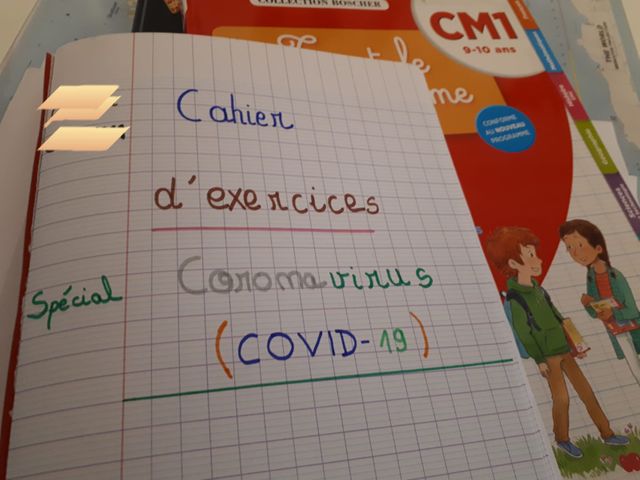 COLLECTION BOSCHER
CM1
9-10 ans
CONFORME
AU NOUVEAU
PROGRAMME
Cahier
d'exercices
Spécial
Coronavirus
(COVID-19)